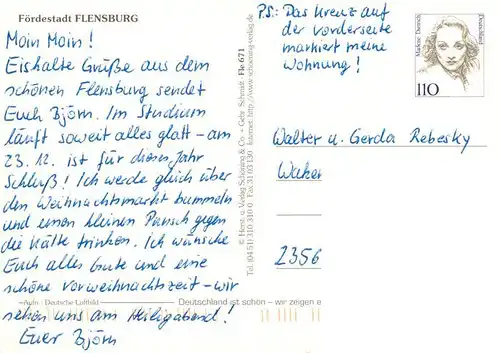 Fördestadt FLENSBURG
Moin Moin!
Eiskalte Grüße aus dem
schönen Flensburg sendet
Euch Björn. Im Studium
läuft soweit alles glatt – am
23.12. ist für dieses Jahr
Schluß! Ich werde gleich über
den Weihnachtsmarkt bummeln
und einen kleinen Punsch gegen
die Kälte trinken. Ich wünsche
Euch alles Gute und eine
schöne Vorweihnachtszeit – wir
sehen uns am Heiligabend!
Euer Björn
Aufn.: Deutsche Luftbild
Deutschland ist schön – wir zeigen e
© Herst. u. Verlag Schöning & Co. + Gebr. Schmidt
Fle 671
Tel. (0451) 310 310 0 Fax 31 03 130 Internet: http://www.schoening-verlag.de
P.S.: Das Kreuz auf
der Vorderseite
markiert meine
Wohnung!
Marlene Dietrich
Deutschland
110
Walter u. Gerda Rebesky
2356